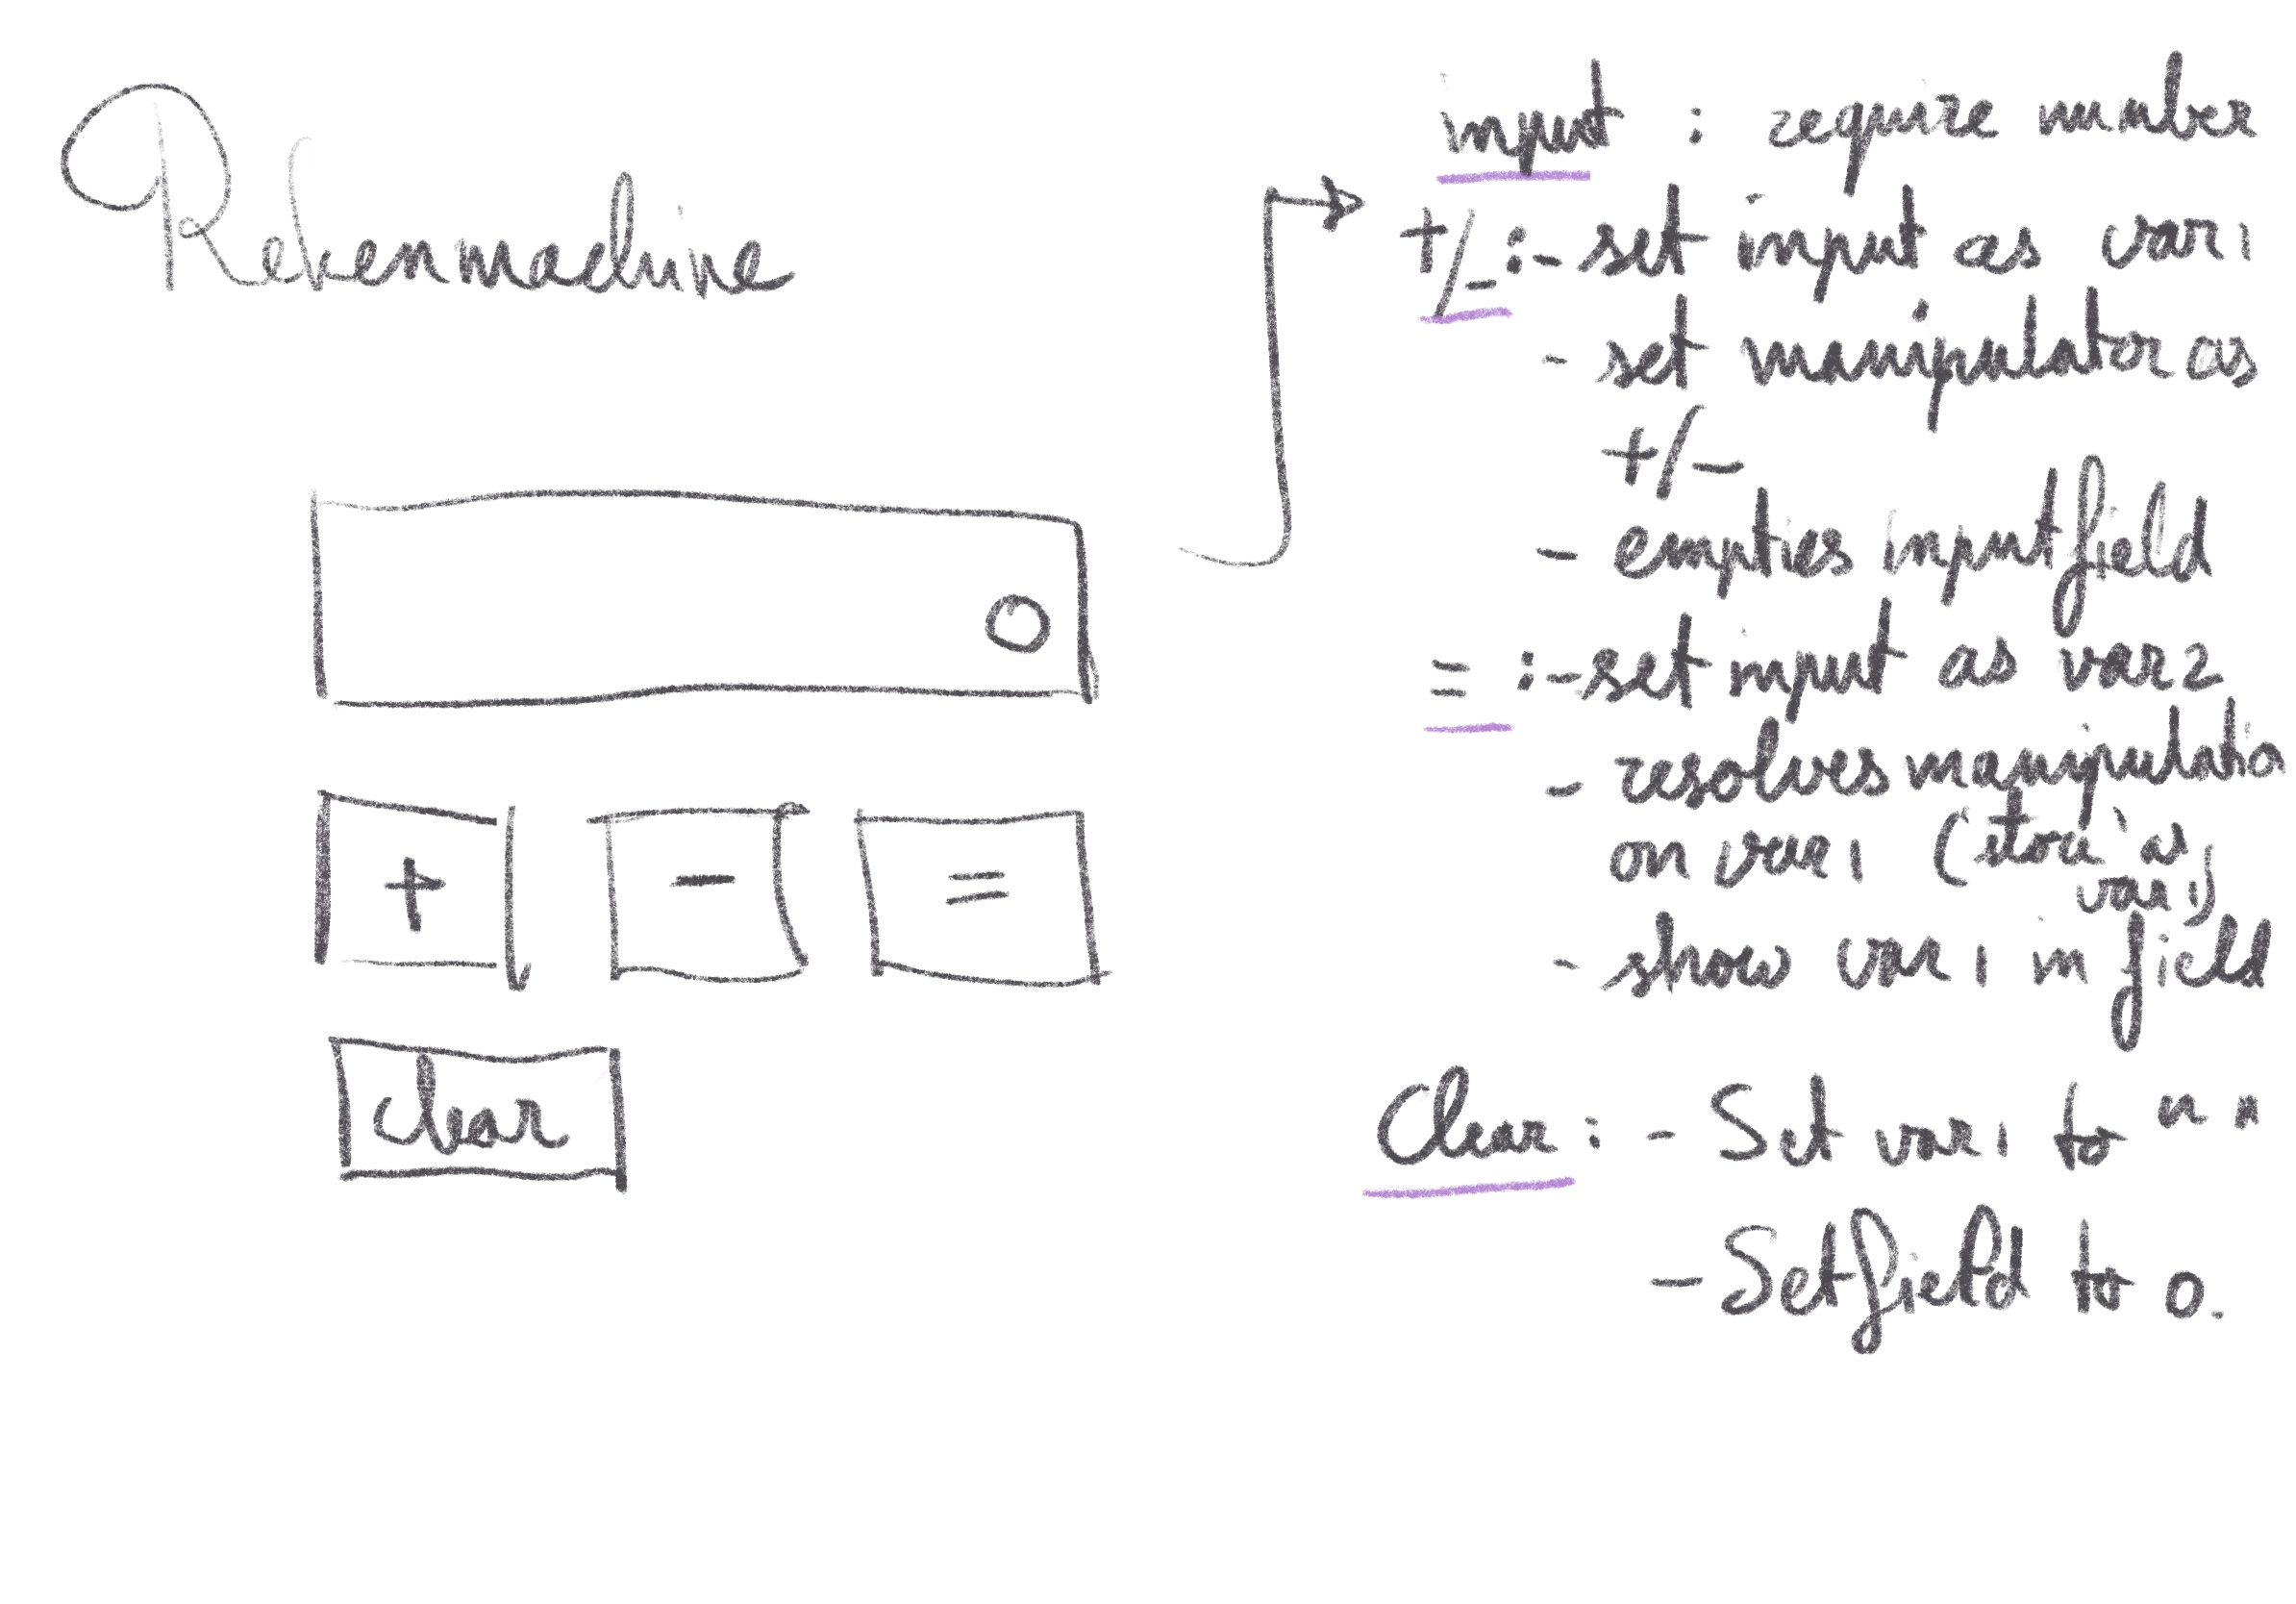 Rekenmachine
0
+ - =
clear
input : require number
+/- :- set input as var 1
- set manipulator as
+/-
- empties inputfield
= :- set input as var 2
- resolves manipulatio
on var 1 (store as
var 1)
- show var 1 in field
Clear : - Set var 1 to " "
- Set field to 0.